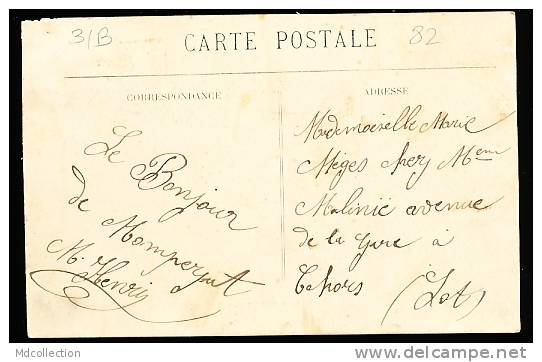 31B
82
CARTE POSTALE
CORRESPONDANCE
ADRESSE
Le Bonjour
de Momperjut
M. Henri
Mademoiselle Marie
Mèges chez Mme
Malinié avenue
de la Gare à
Cahors
(Lot)
Mdcollection
www.delcampe.net